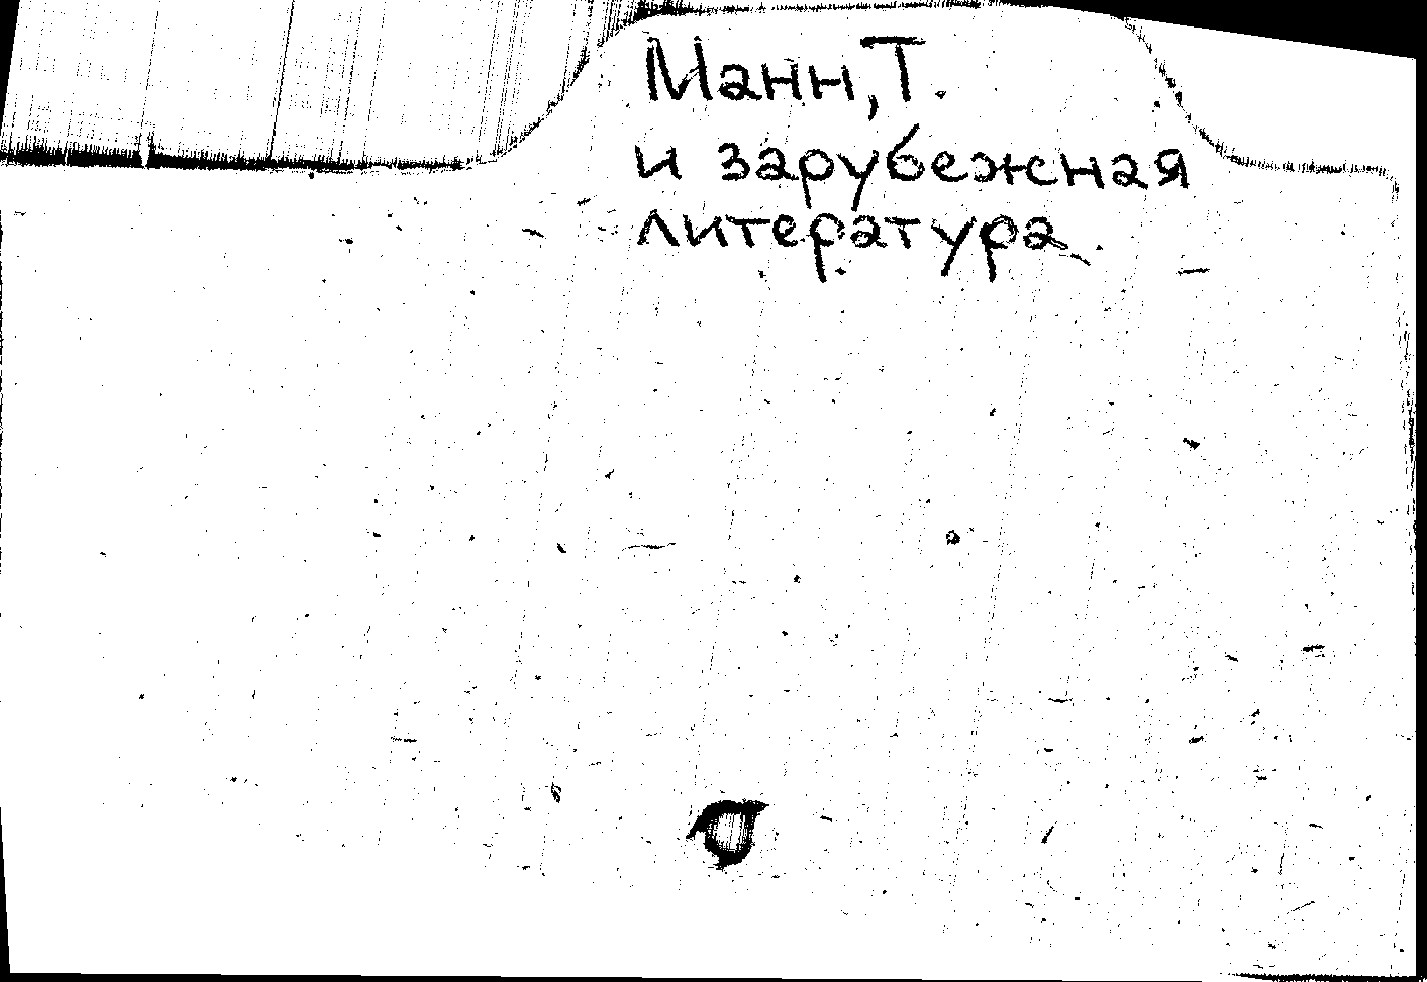 Манн, Т.
и зарубежная
литература.